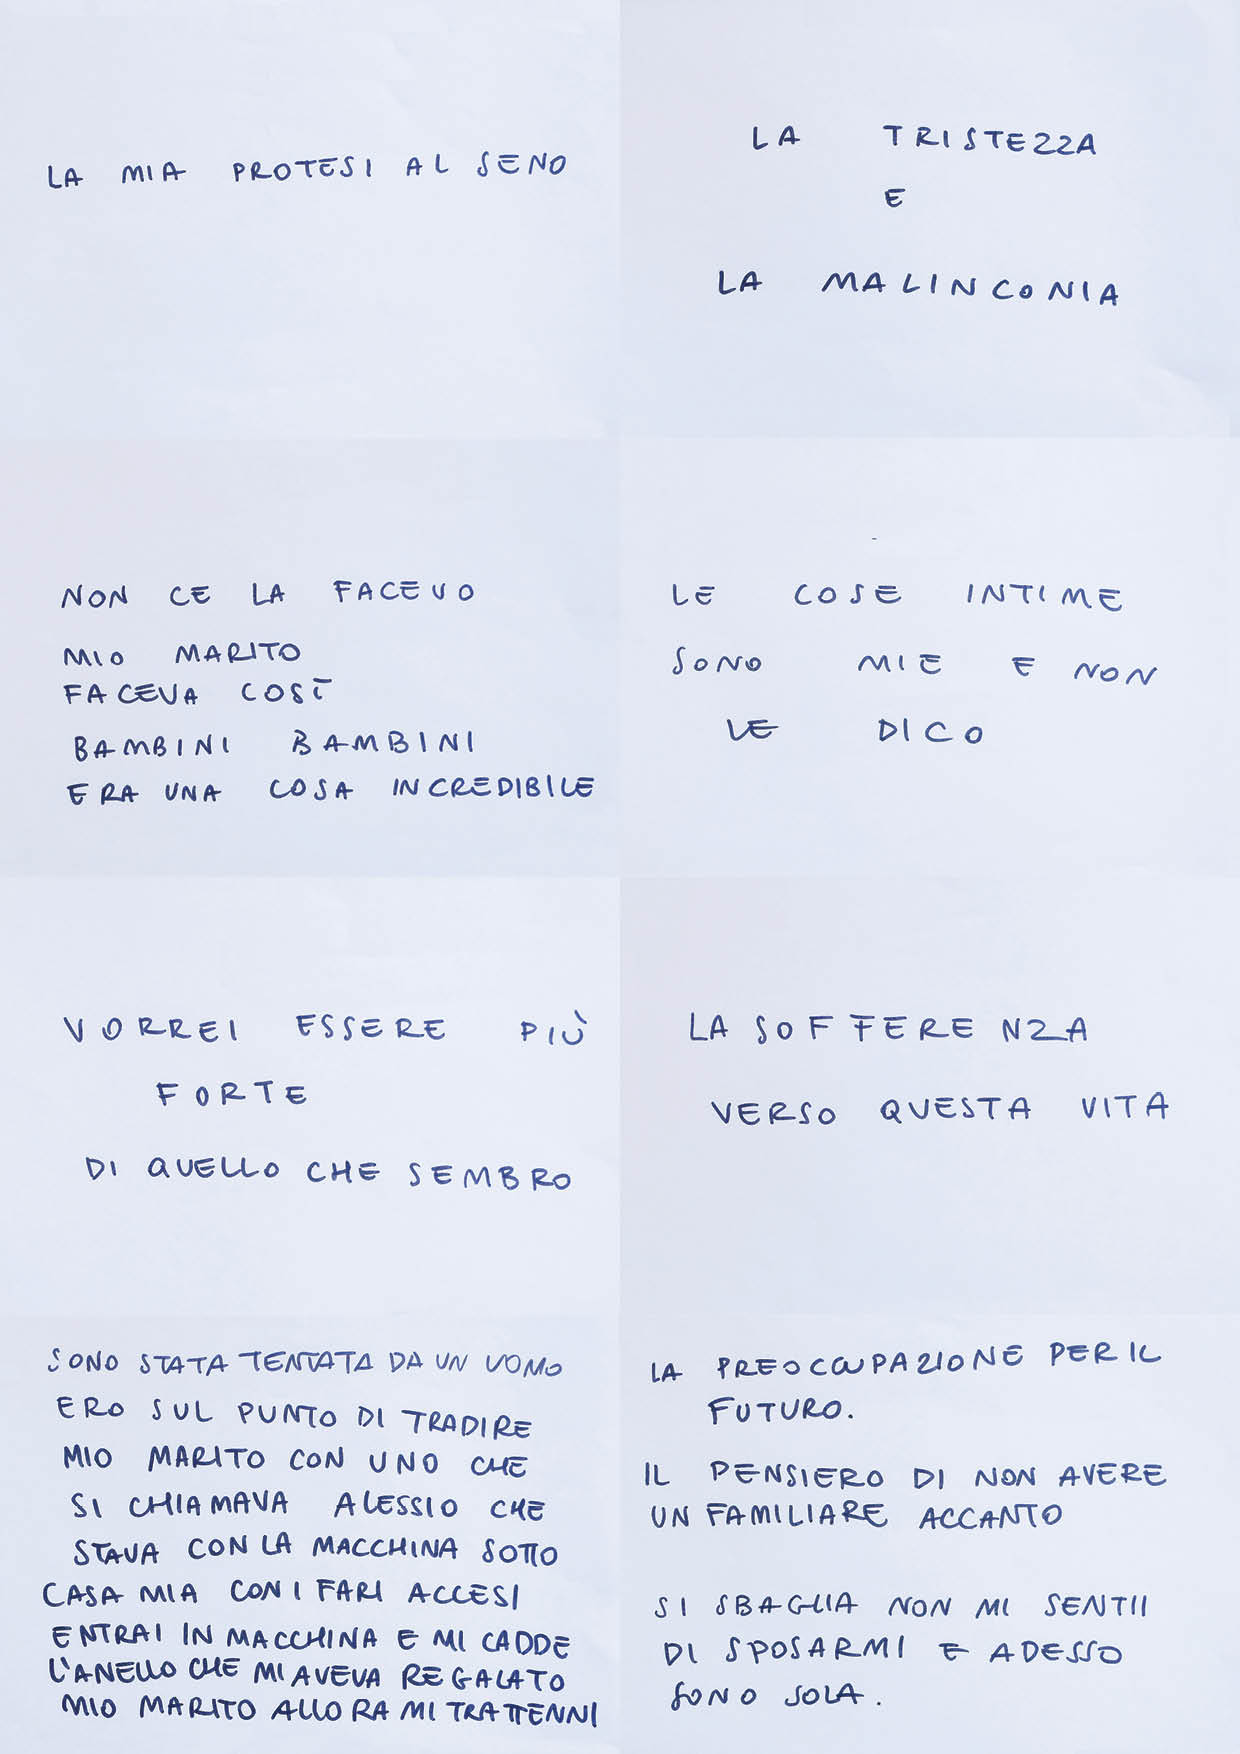 LA MIA PROTESI AL SENO
LA TRISTEZZA
E
LA MALINCONIA
NON CE LA FACEVO
MIO MARITO
FACEVA COSÌ
BAMBINI BAMBINI
ERA UNA COSA INCREDIBILE
LE COSE INTIME
SONO MIE E NON
LE DICO
VORREI ESSERE PIÙ
FORTE
DI QUELLO CHE SEMBRO
LA SOFFERENZA
VERSO QUESTA VITA
SONO STATA TENTATA DA UN UOMO
ERO SUL PUNTO DI TRADIRE
MIO MARITO CON UNO CHE
SI CHIAMAVA ALESSIO CHE
STAVA CON LA MACCHINA SOTTO
CASA MIA CON I FARI ACCESI
ENTRAI IN MACCHINA E MI CADDE
L'ANELLO CHE MI AVEVA REGALATO
MIO MARITO ALLORA MI TRATTENNI
LA PREOCCUPAZIONE PER IL
FUTURO.
IL PENSIERO DI NON AVERE
UN FAMILIARE ACCANTO
SI SBAGLIA NON MI SENTII
DI SPOSARMI E ADESSO
SONO SOLA.